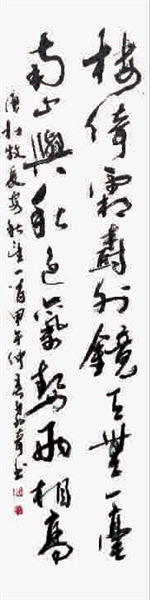 楼倚霜树外镜天无一毫
南山与秋色气势两相高
唐杜牧长安秋望一首甲午仲春书